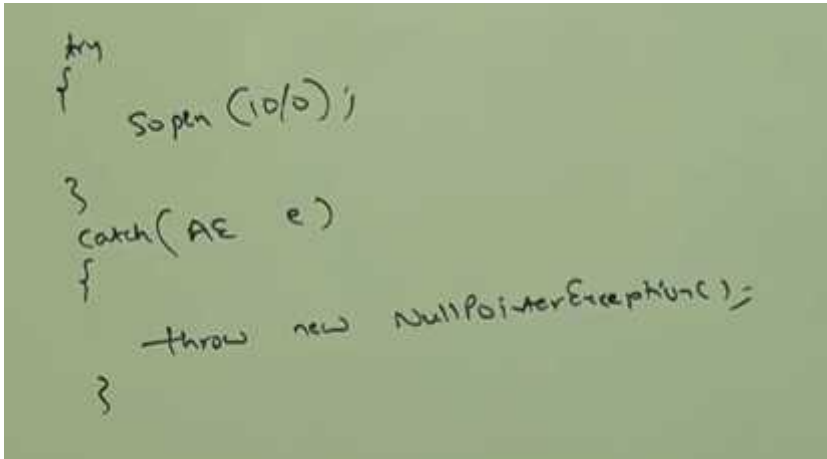 try
{
sopln (10/0);
}
catch( AE e)
{
throw new NullPointerException();
}